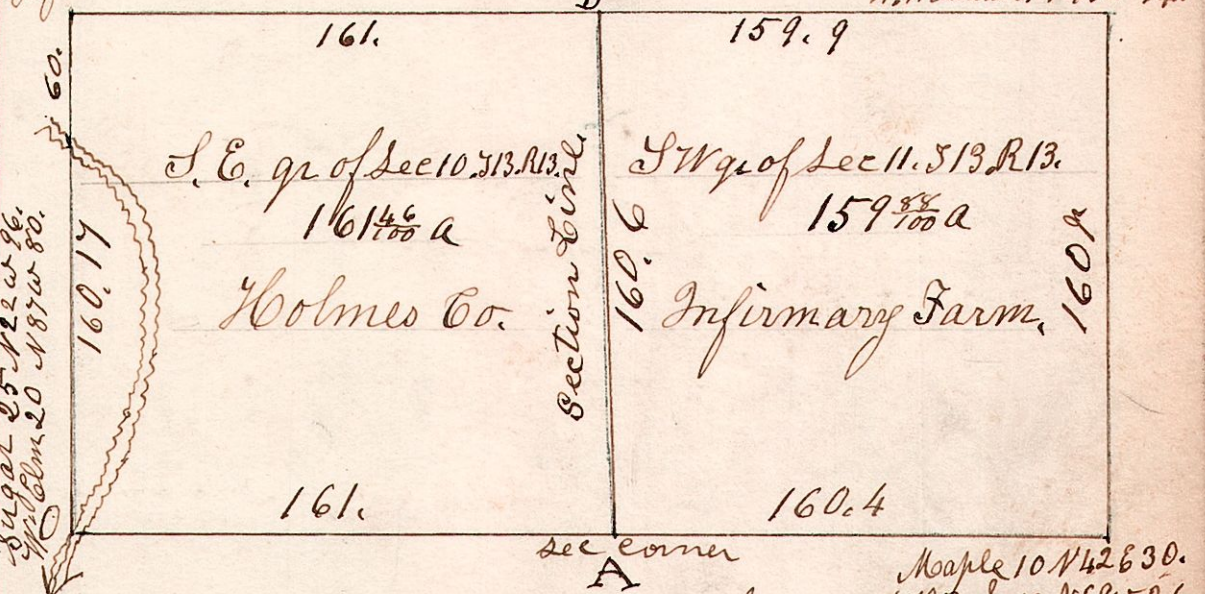 161.
159.9
60.
S. E. qr of Sec 10. T13. R13.
161 46/100 a
Holmes Co.
160.17
Section Line
160.6
S W qr of Sec 11. T 13 R 13.
159 88/100 a
Infirmary Farm.
Sugar 25 N 22 W 96.
W. Elm 20 N 87 W 80.
161.
160.4
sec corner
A
Maple 10 N 42 E 30.